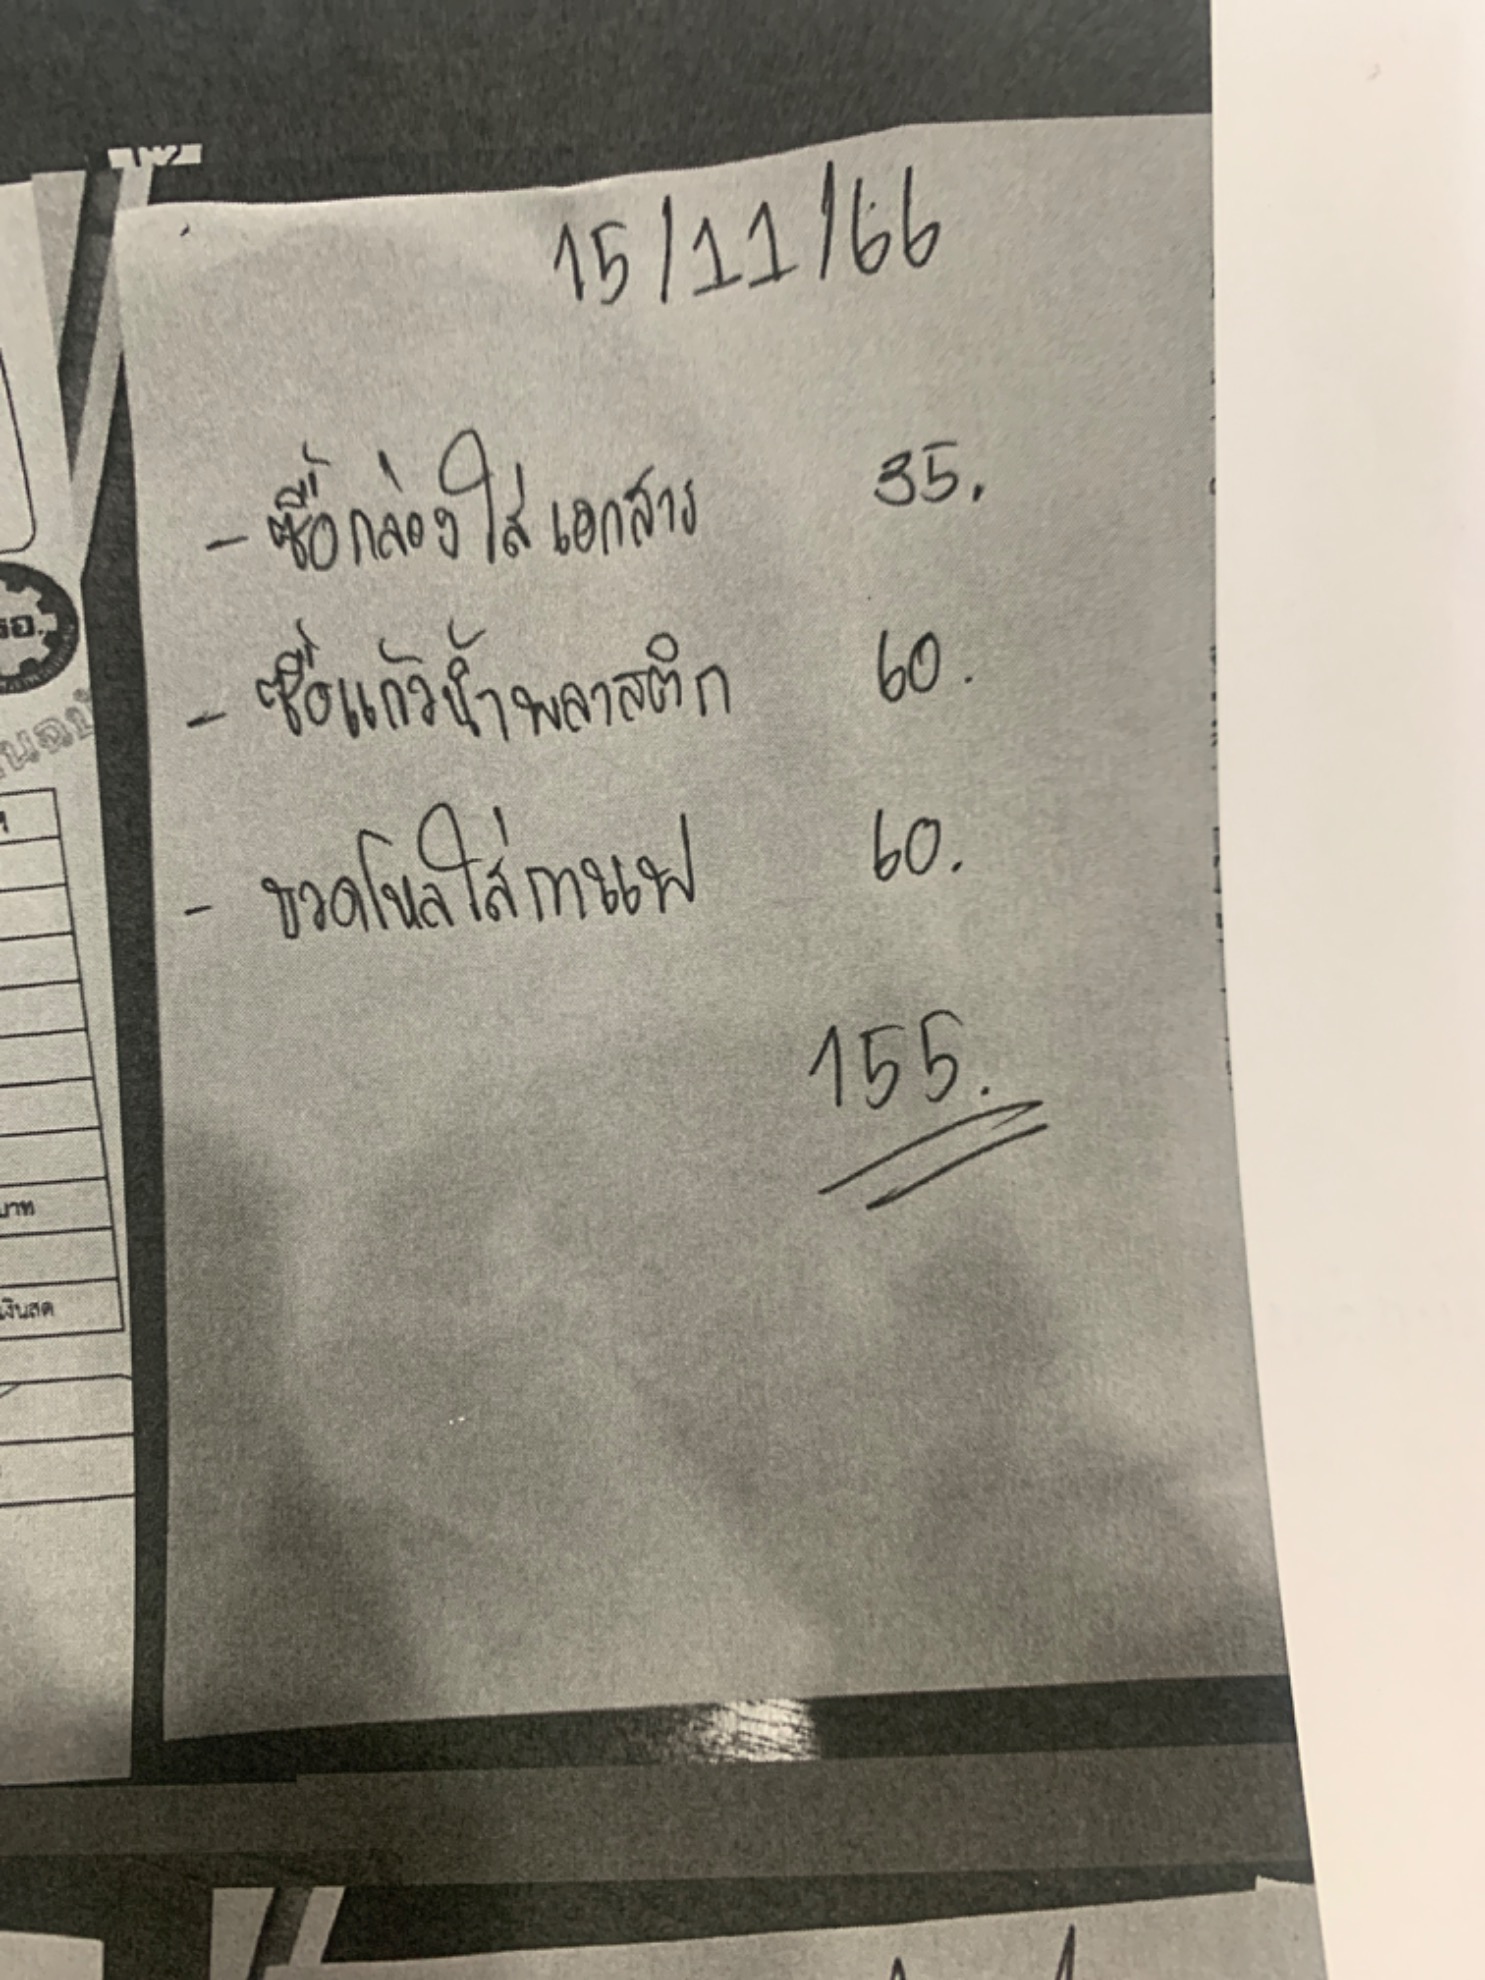 15/11/66
- ซื้อกล่องใส่เอกสาร 35.
- ซื้อแก้วน้ำพลาสติก 60.
- ขวดโหลใส่กาแฟ 60.
155.
บาท
เงินสด